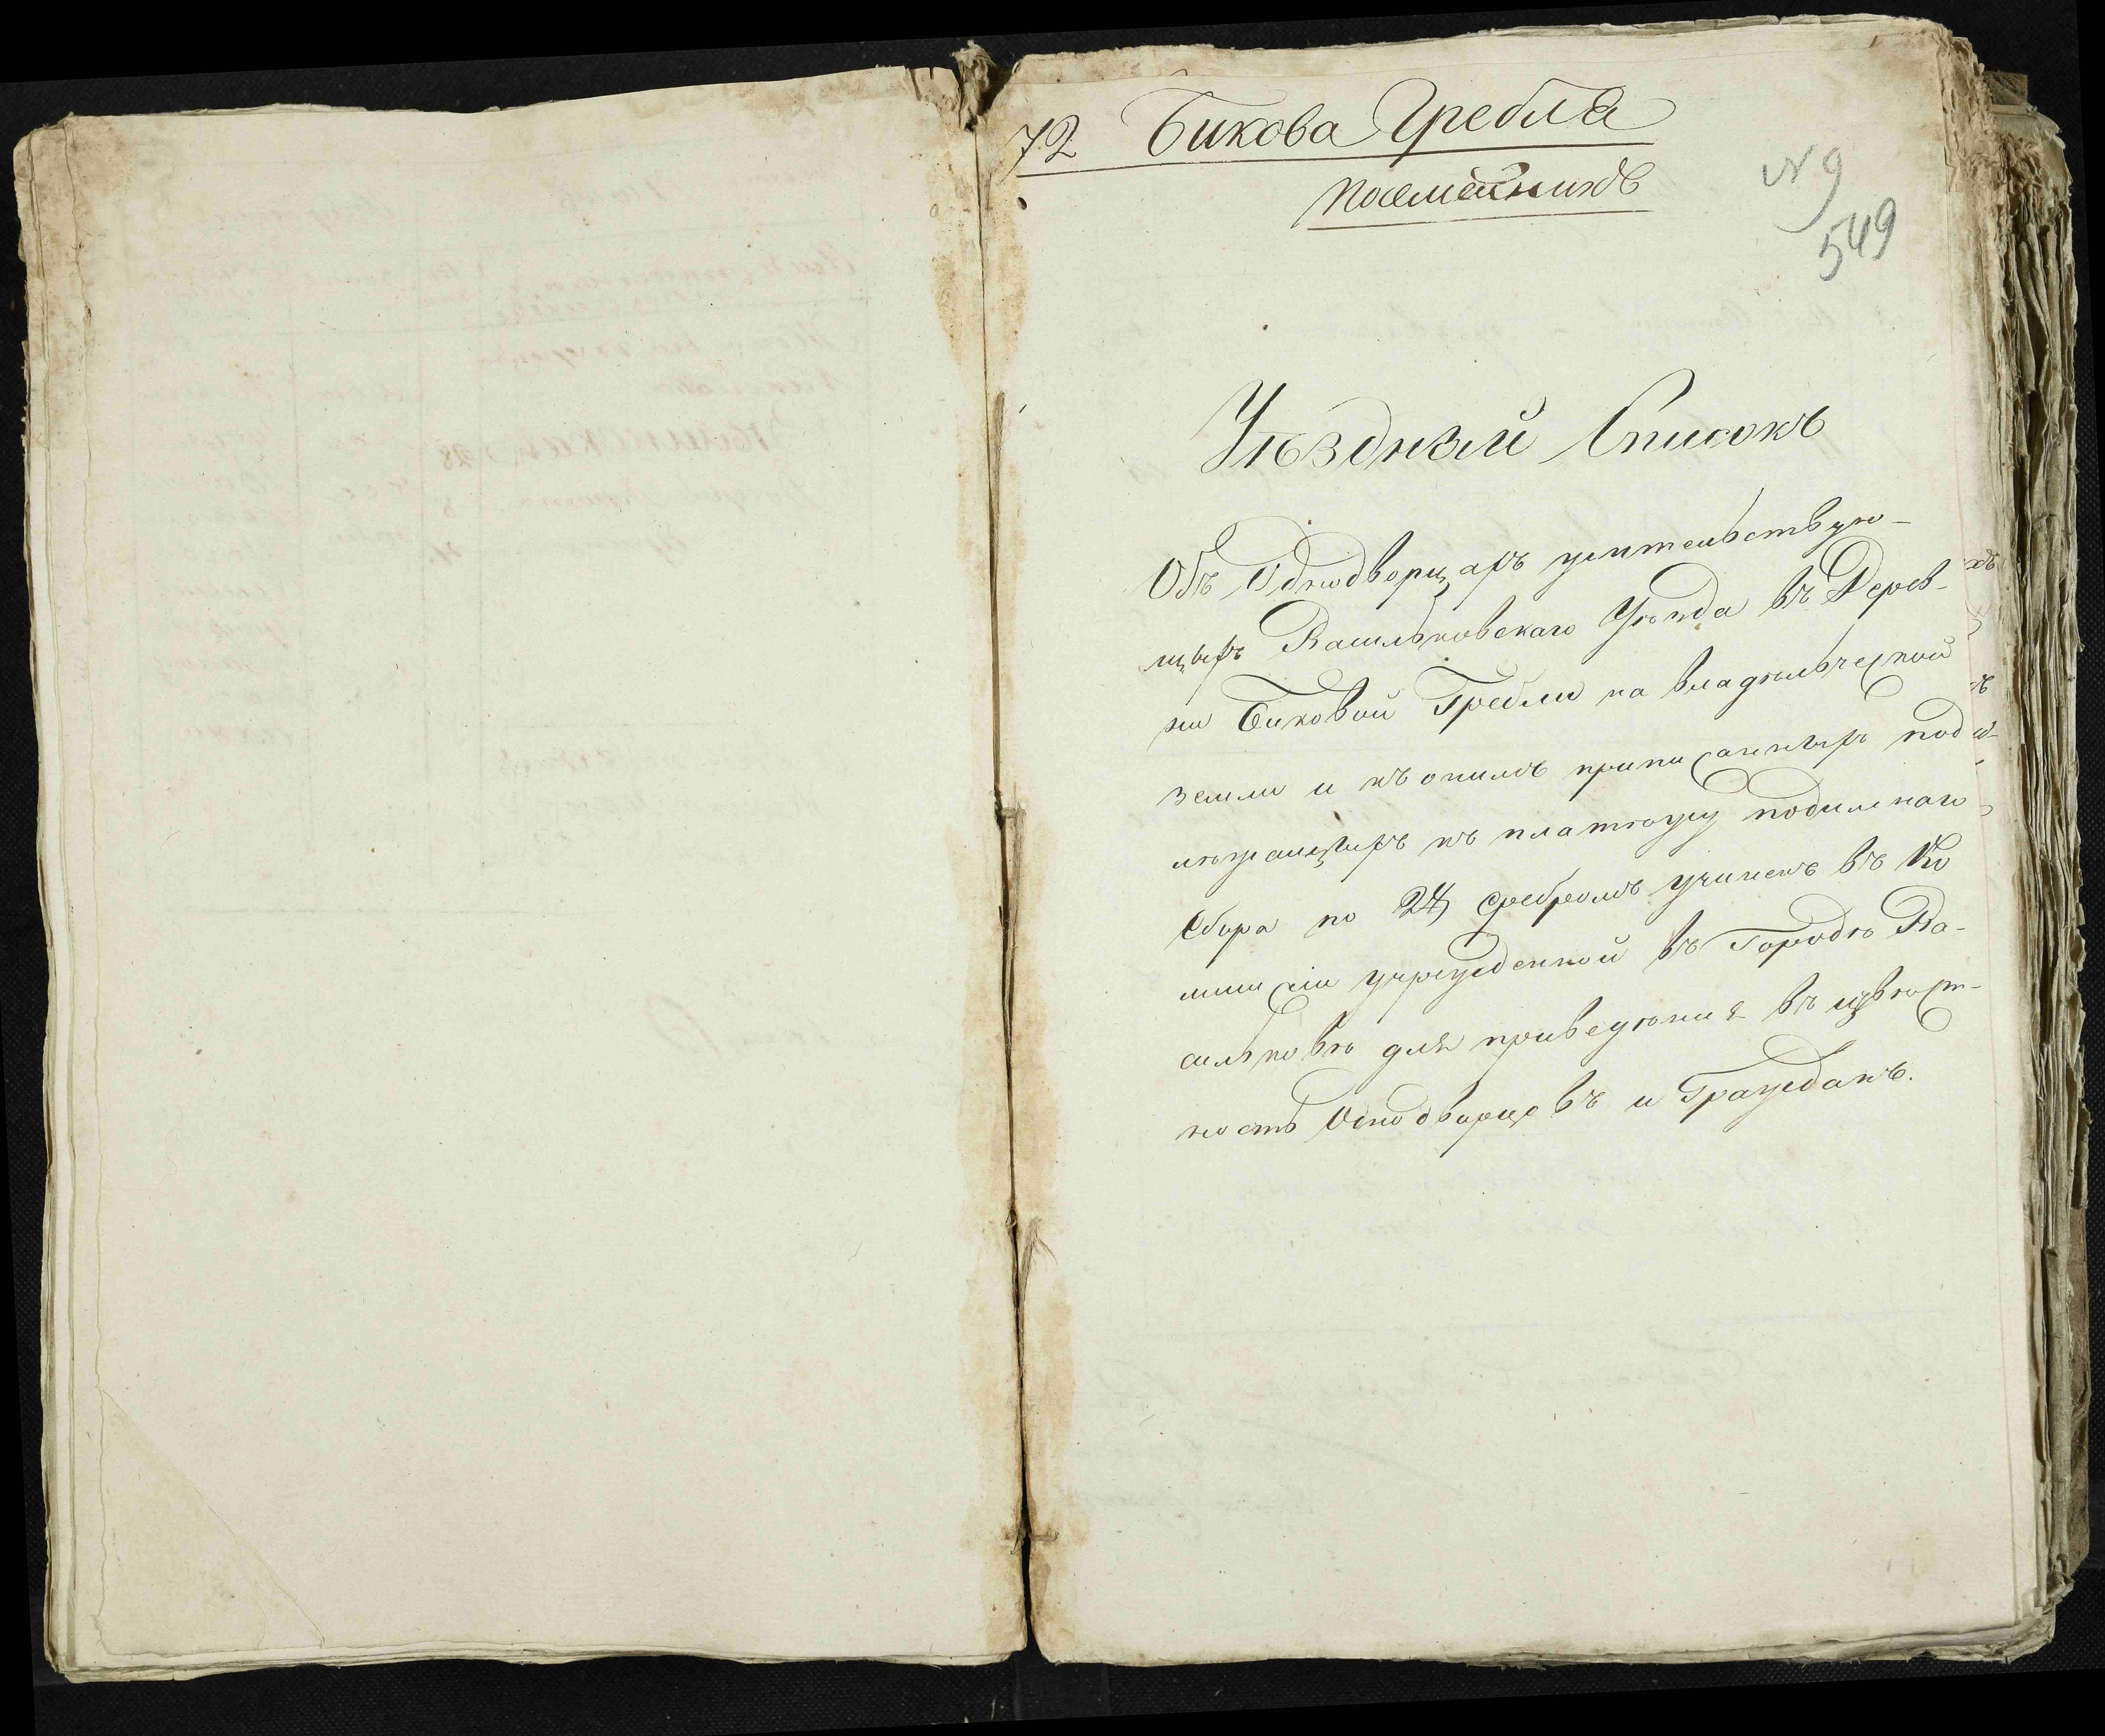 72 Бикова Гребля
посемейникъ
№ 9
549
Уѣздный Списокъ
Объ Однодворцахъ жительствую-
щихъ Васильковскаго Уѣзда въ Дерев-
ни Биковой Гребли на владѣльческой
земли и къ онимъ приписанныхъ подл-
лѣжащихъ къ платѣжу подимнаго
Сбора по 24 сребромъ учиненъ въ Ко
миссіи учрежденной въ Городѣ Ва-
сильковѣ для приведѣния въ извѣст-
ность Однодворцевъ и Гражданъ.